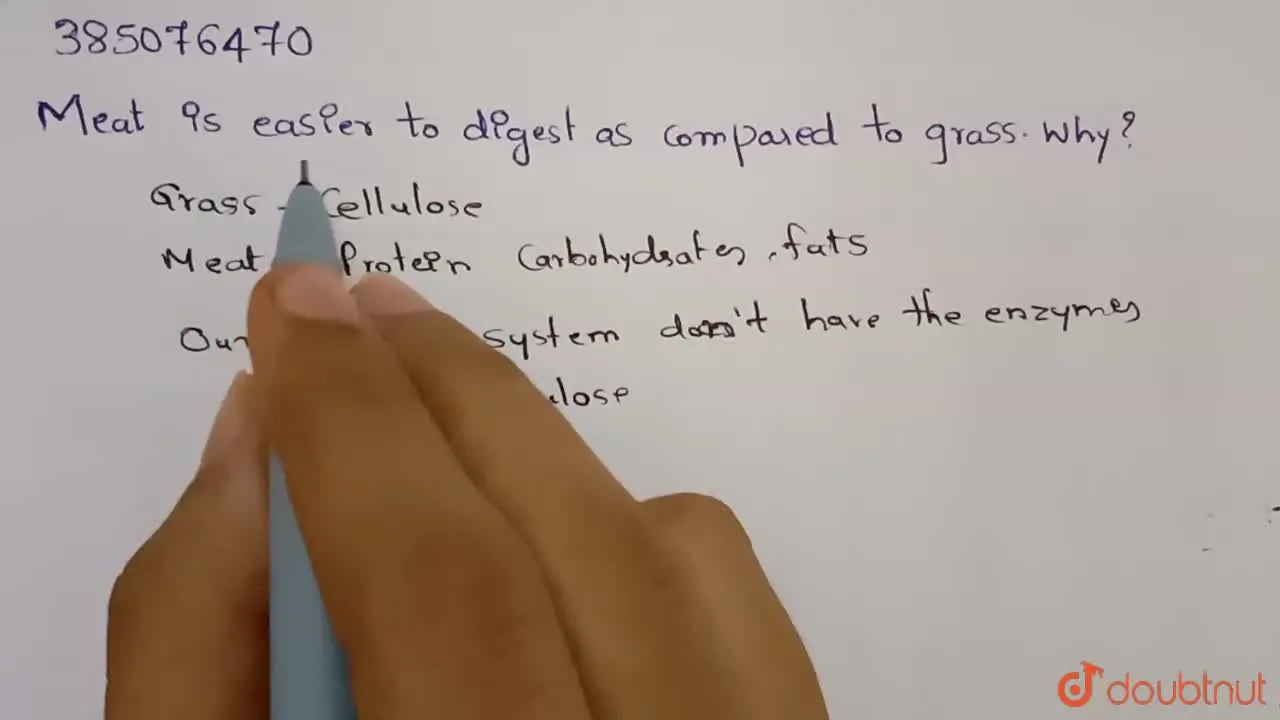 385076470
Meat is easier to digest as compared to grass. Why?
Grass - Cellulose
Meat Protein Carbohydrates, fats
Our system doesn't have the enzymes
doubtnut